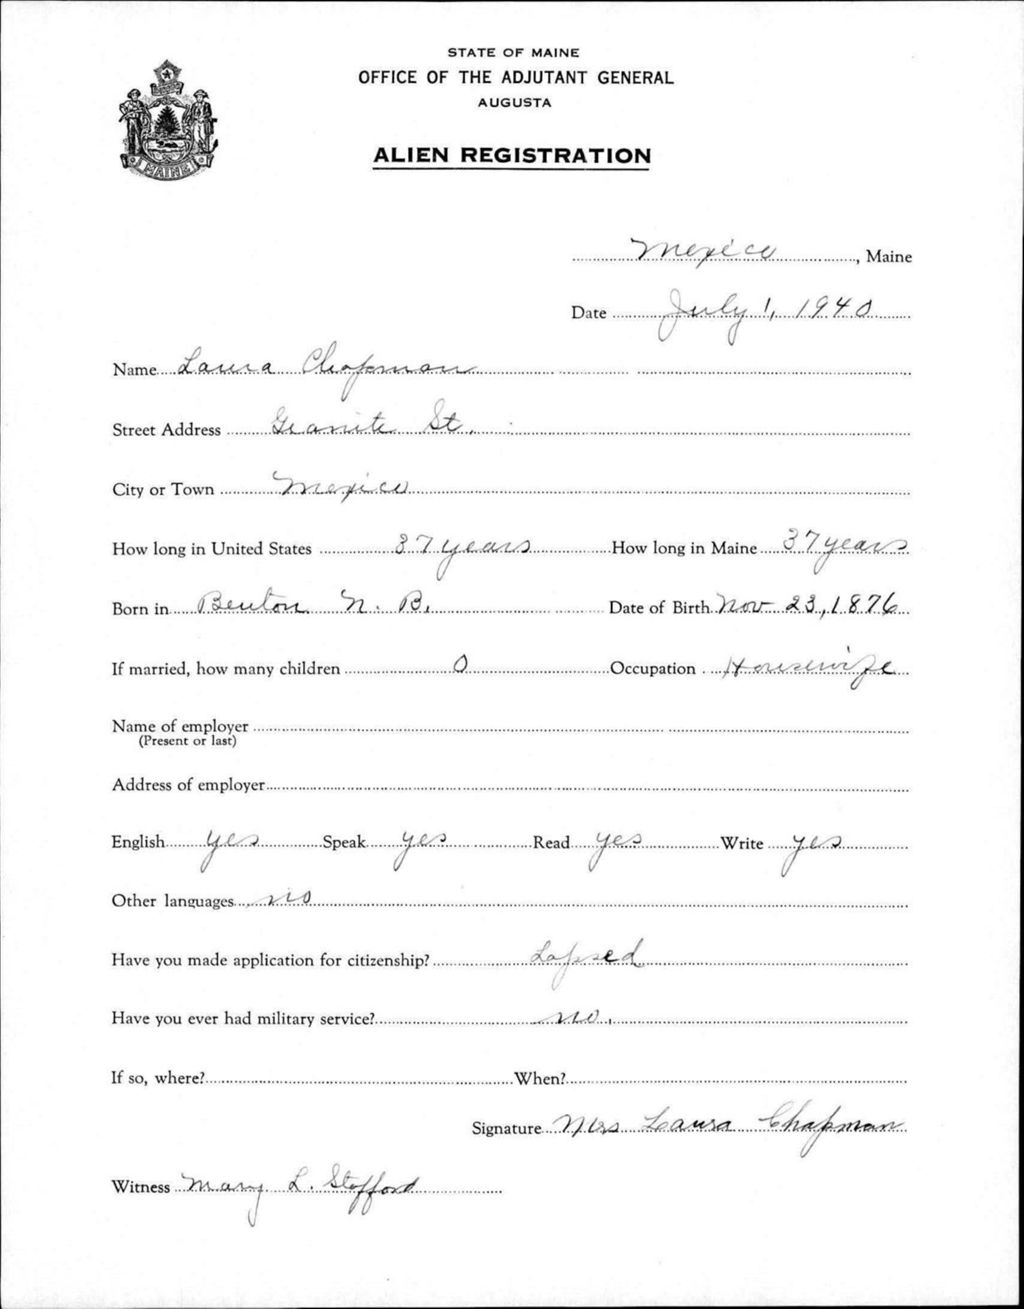 STATE OF MAINE
OFFICE OF THE ADJUTANT GENERAL
AUGUSTA
ALIEN REGISTRATION
MAINE
Mexico, Maine
Date July 1, 1940
Name Laura Chapman
Street Address Granite St.
City or Town Mexico
How long in United States 37 years How long in Maine 37 years
Born in Benton N. B. Date of Birth Nov 23, 1876
If married, how many children 0 Occupation Housewife
Name of employer
(Present or last)
Address of employer
English yes Speak yes Read yes Write yes
Other languages no
Have you made application for citizenship? Lapsed
Have you ever had military service? no.
If so, where? When?
Signature Mrs Laura Chapman
Witness Mary L. Stafford